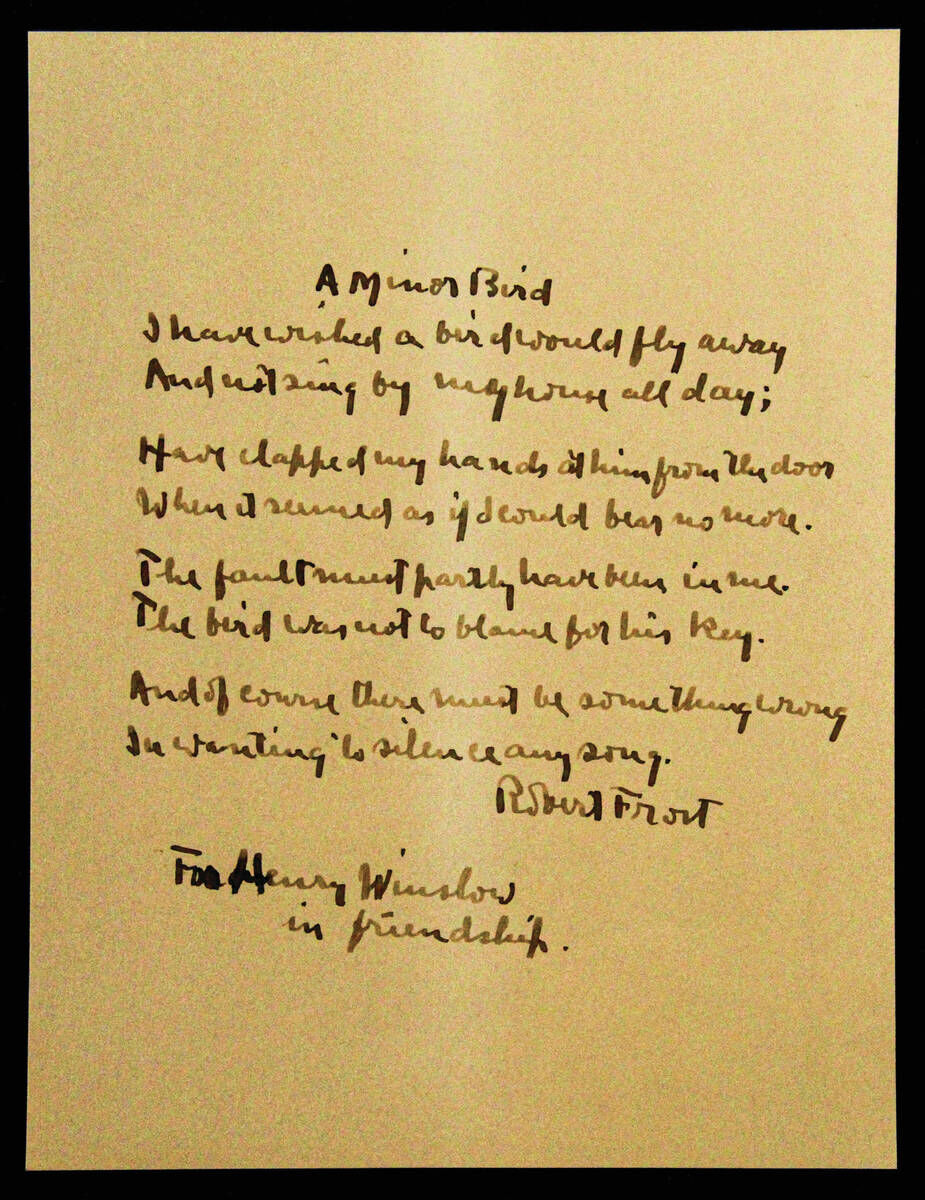 A Minor Bird
I have wished a bird would fly away
And not sing by my house all day;
Have clapped my hands at him from the door
When it seemed as if I could bear no more.
The fault must partly have been in me.
The bird was not to blame for his key.
And of course there must be something wrong
In wanting to silence any song.
Robert Frost
For Henry Winslow
in friendship.